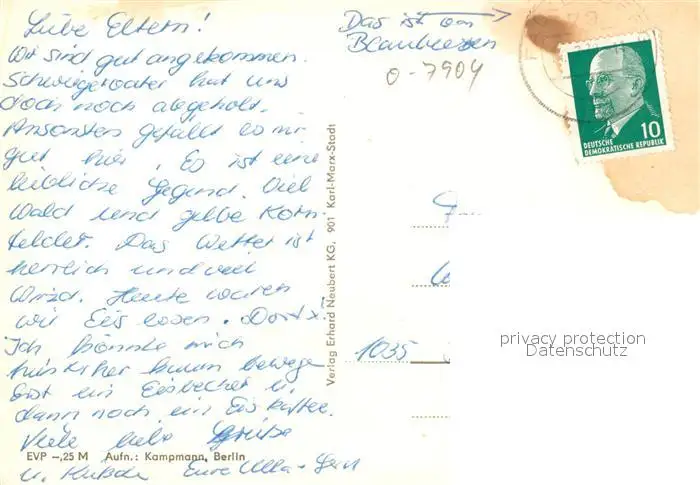 Liebe Eltern!
Wir sind gut angekommen.
Schwiegervater hat uns
doch noch abgeholt.
Ansonsten gefällt es mir
gut hier. Es ist eine
liebliche Gegend. Viel
Wald und gelbe Korn-
felder. Das Wetter ist
herrlich und viel
Wind. Heute waren
wir Eis essen. Dort
Ich könnte mich
hinterher kaum bewege
Erst ein Eisbecher u.
dann noch ein Eiskaffee.
Viele liebe Grüße
u. Küßchen Eure Ulla + Gerd
EVP –,25 M Aufn.: Kampmann, Berlin
Verlag Erhard Neubert KG, 901 Karl-Marx-Stadt
Das ist von
Blaubeeren
0-7904
10
DEUTSCHE
DEMOKRATISCHE REPUBLIK
1035
privacy protection
Datenschutz